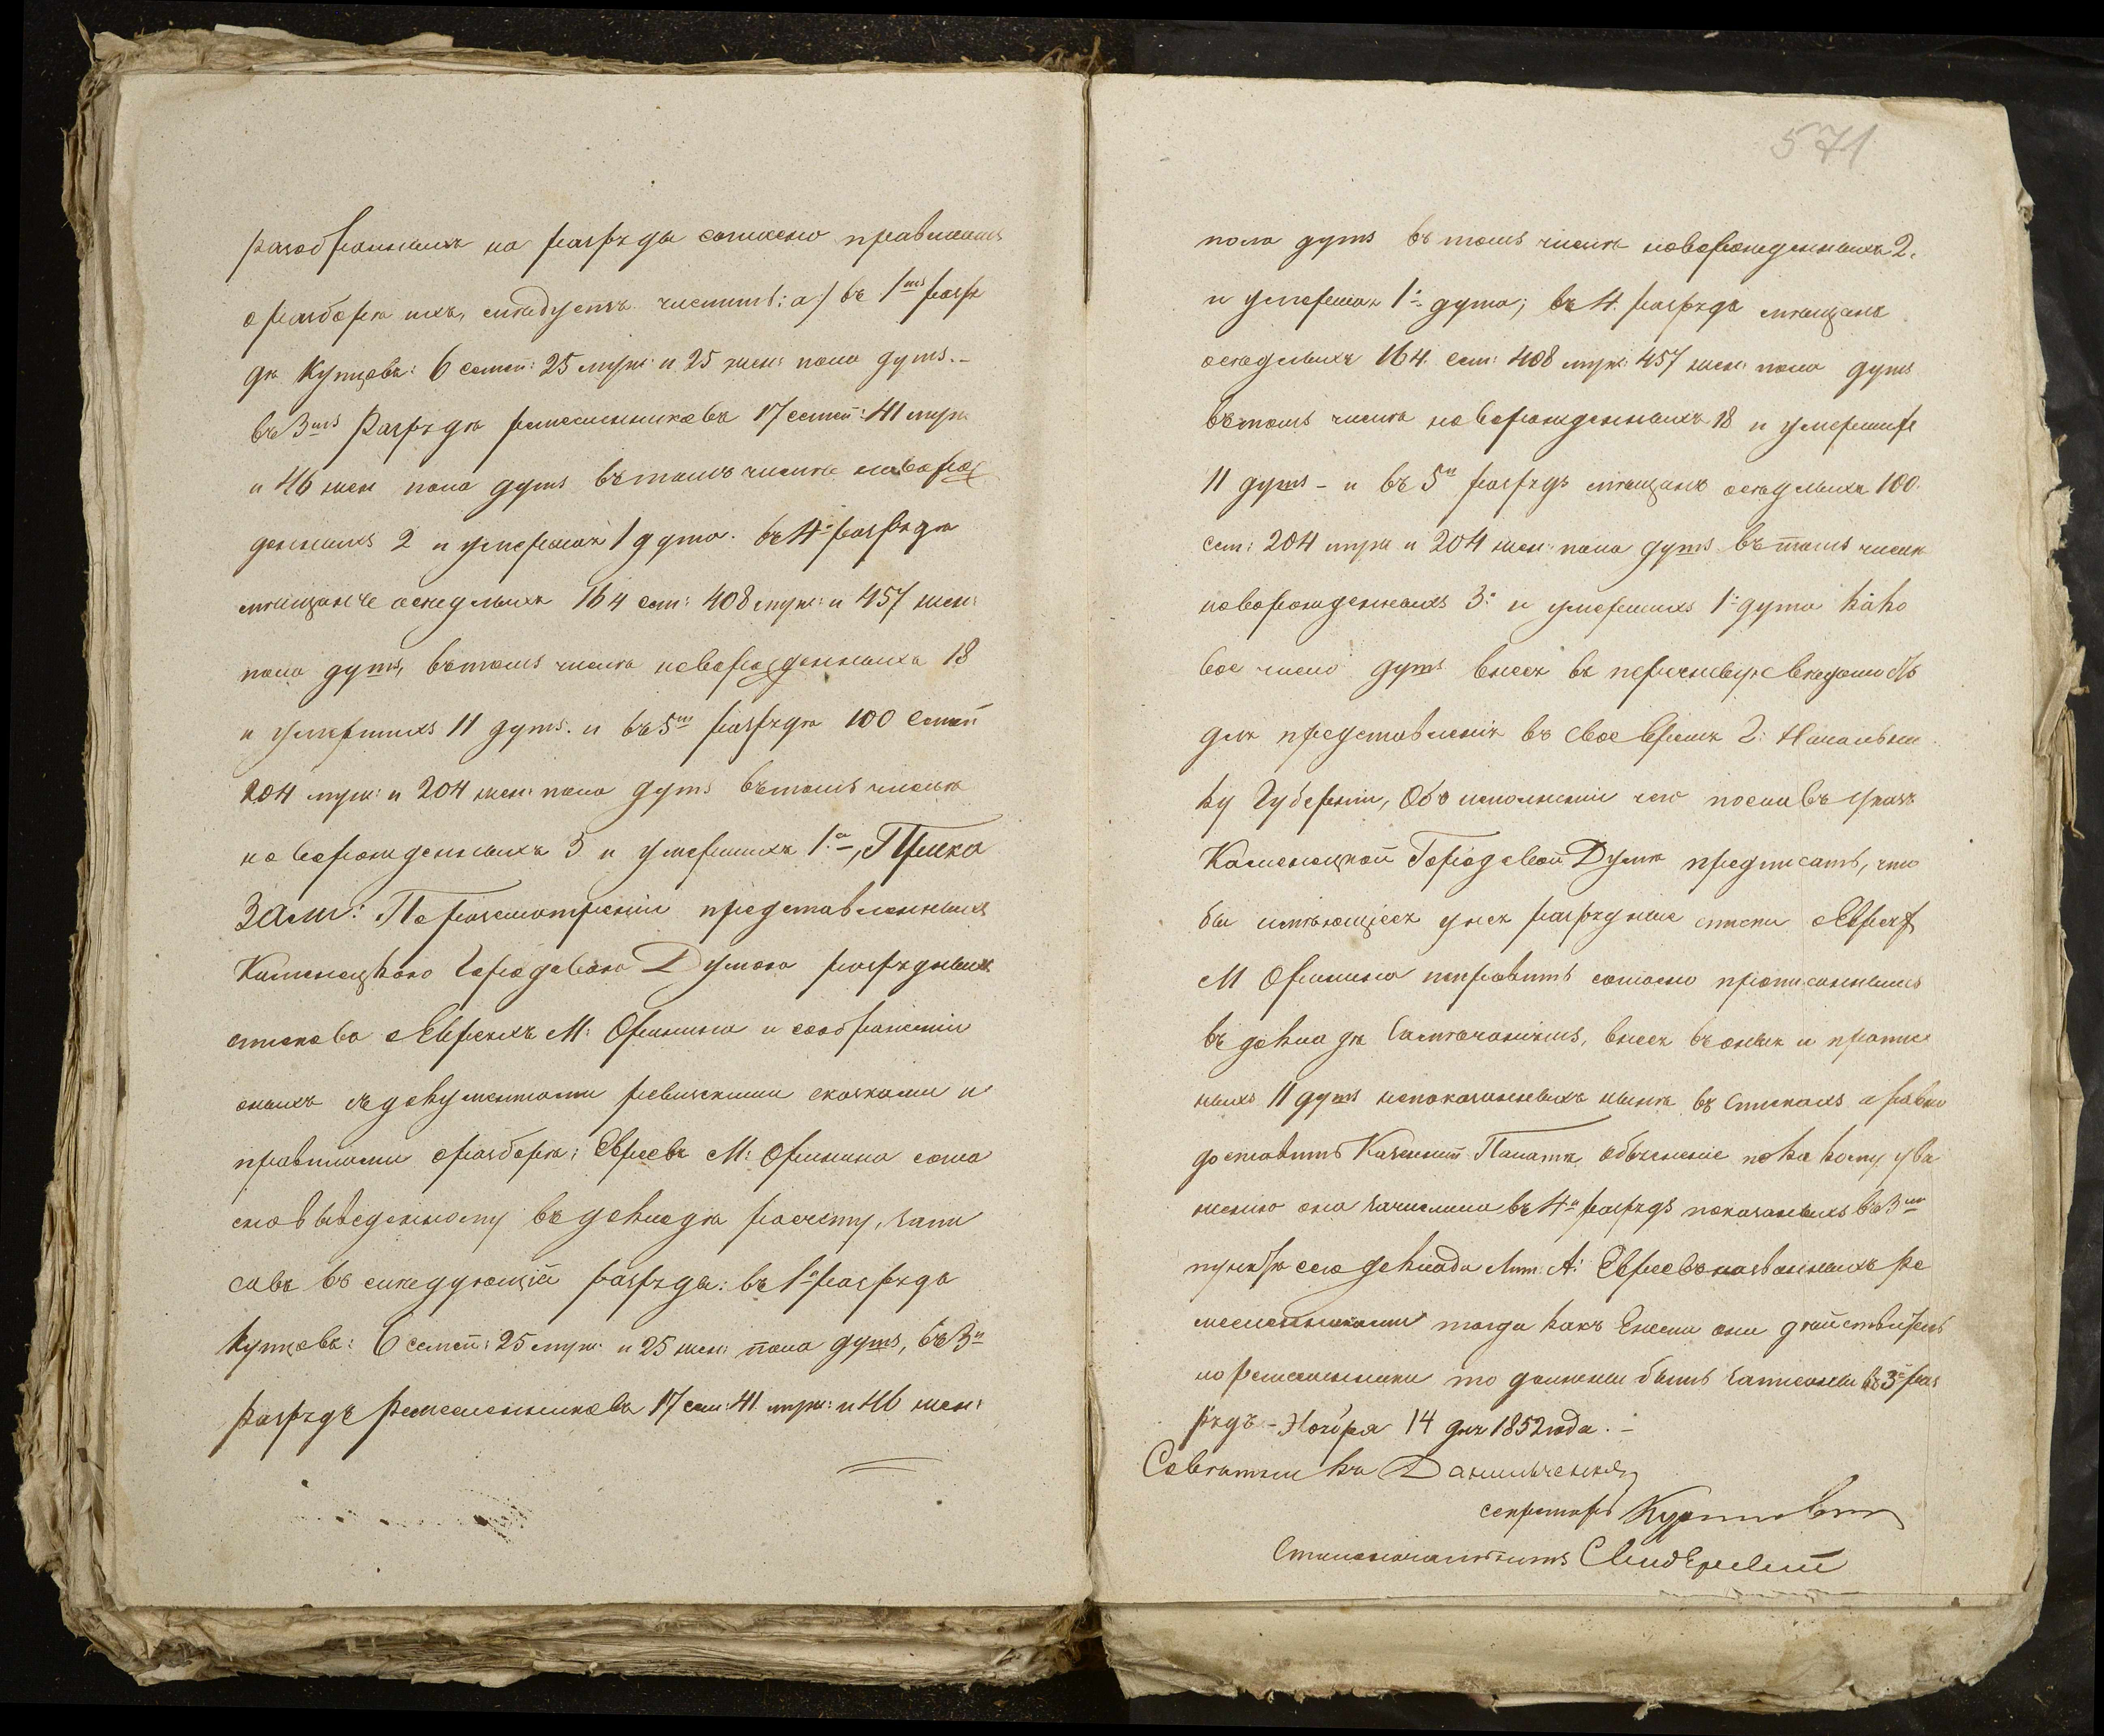 разобранныхъ на разряды согласно правиламъ
о разборѣ ихъ, слѣдуетъ числить: а/ въ 1мъ разря
дѣ Купцовъ: 6 семей: 25 муж: и 25 жен: пола душъ. –
въ 3мъ Разрядѣ ремесленниковъ 17 семей: 41 муж
и 46 жен пола душъ въ томъ числѣ новорож
денныхъ 2 и умершая 1 душа. въ 4 разрядѣ
мѣщане осѣдлыхъ 164 сем: 408 муж: и 457 жен:
пола душъ, въ томъ числѣ новорожденныхъ 18
и умершихъ 11 душъ. и въ 5мъ разрядѣ 100 семей
204 муж: и 204 жен: пола душъ въ томъ числѣ
новорожденныхъ 3 и умершихъ 1.а, Прика
зали: По разсмотреніи представленныхъ
Каменецкою Городовою Думою разрядныхъ
списковъ о Евреяхъ М: Оринина и соображеніи
оныхъ съ документами ревизскими сказками и
правилами о разборѣ; Евреевъ М: Оринина согла
сно выведенному въ докладѣ разчету, запи
савъ въ слѣдующій разряды: въ 1й разрядъ
Купцовъ: 6 семей: 25 муж: и 25 жен: пола душъ, въ 3й
разрядъ Ремесленниковъ 17 сем: 41 муж: и 46 жен:
571
пола душъ въ томъ числѣ новорожденныхъ 2.
и умершая 1. душа; въ 4. разрядъ мѣщанъ
осѣдлыхъ 164. сем: 408 муж: 457 жен: пола душъ
въ томъ числѣ новорожденныхъ 18 и умерших
11 душъ – и въ 5й разрядъ мѣщанъ осѣдлыхъ 100.
сем: 204 муж и 204 жен: пола душъ въ томъ числѣ
новорожденныхъ 3. и умершихъ 1. душа како
вое число душъ внеся въ перечневую вѣдомость
для представленія въ свое время Г: Начальни
ку Губерніи, Объ исполненіи чего пославъ указъ
Каменецкой Городовой Думѣ предписать, что
бы имѣющіеся у нея разрядные списки о Евреях
М Оринина исправить согласно прописаннымъ
въ докладѣ замѣчаніямъ, внеся въ оныя и пропис
ныхъ 11 душъ непоказанныхъ нынѣ въ спискахъ а равно
доставить Казенной Палатѣ объясненіе по какому ува
женію она зачислила въ 4й разрядъ показаныхъ въ 3мъ
пунктѣ сего доклада Лит. А: Евреевъ названныхъ ре
месленниками тогда какъ Ежели они дѣйствитель
но ремесленники то должны быть записаны въ 3й раз
рядъ – Ноября 14 дня 1852 года. –
Совѣтникъ Данильченко
секретарь
Столоначальникъ